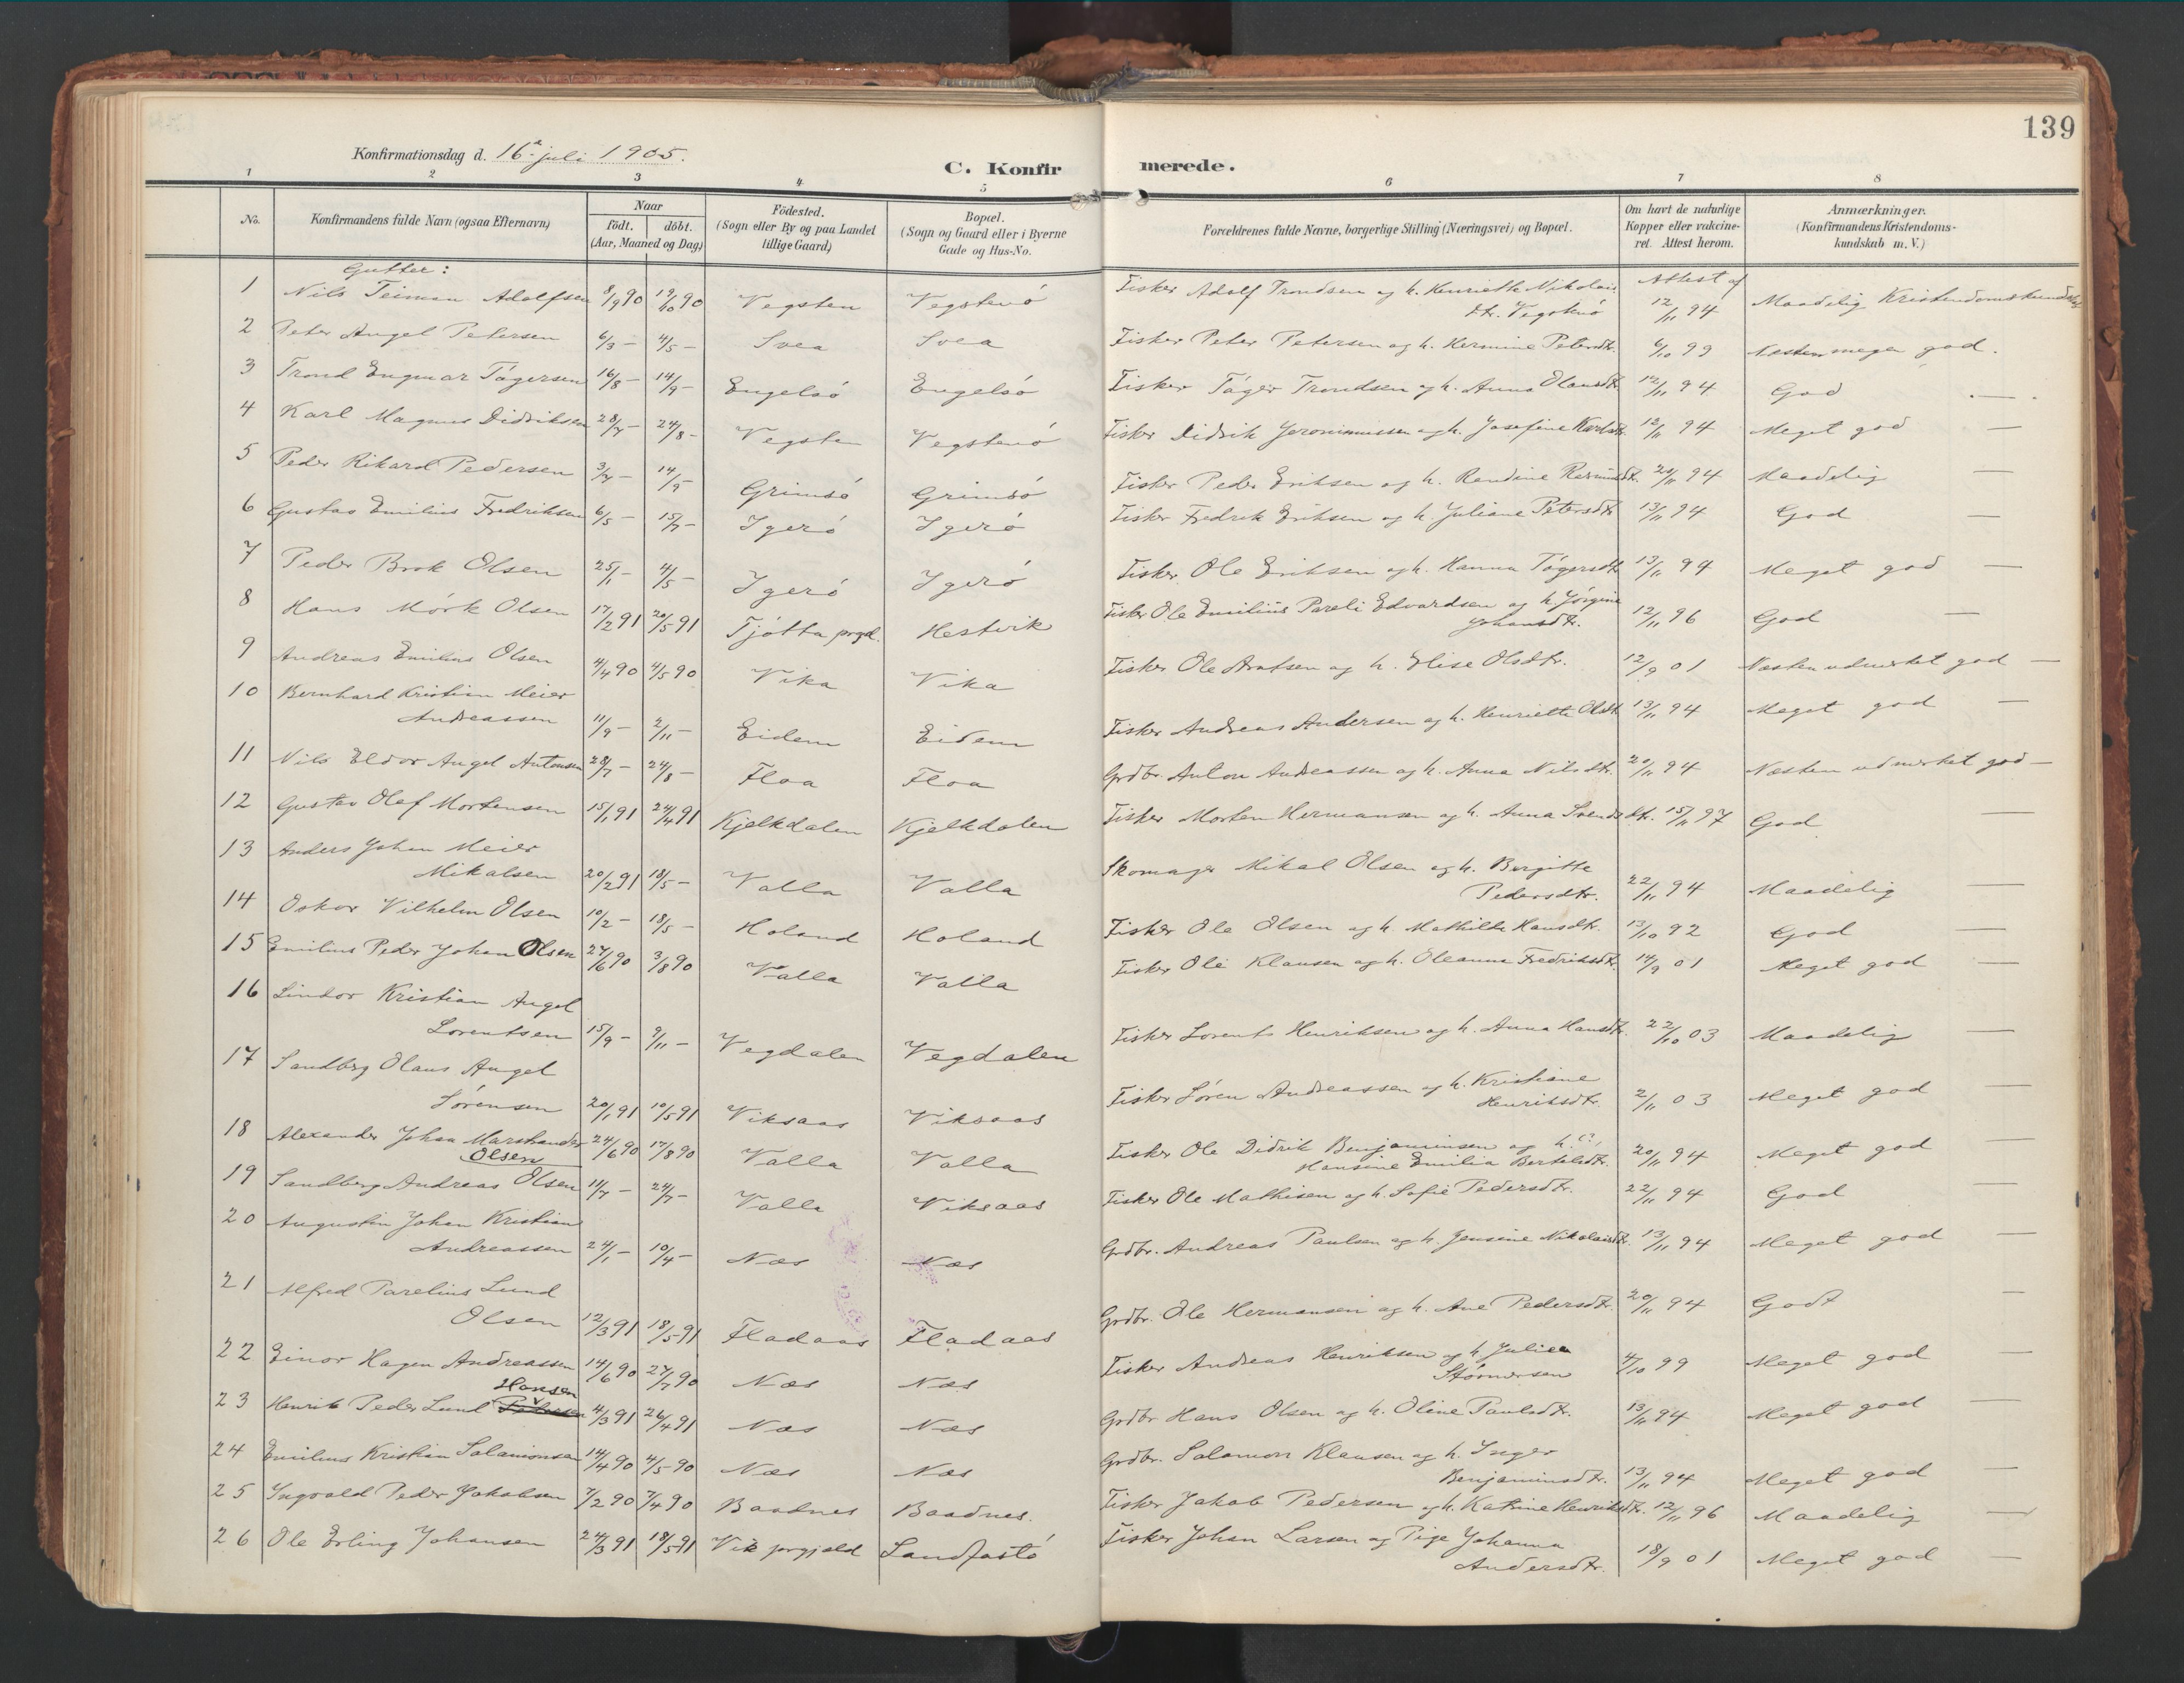 139
Konfirmationsdag d. 16de juli 1905.
C. Konfirmerede.
1 2 3 4 5 6 7 8
No. Konfirmandens fulde Navn (ogsaa Efternavn) Naar födt. döbt. (Aar, Maaned og Dag) Födested. (Sogn eller By og paa Landet tillige Gaard) Bopæl. (Sogn og Gaard eller i Byerne Gade og Hus-No. Forældrenes fulde Navne, borgerlige Stilling (Næringsvei) og Bopæl. Om havt de naturlige Kopper eller vaccineret. Attest herom. Anmærkninger. (Konfirmandens Kristendomskundskab m. V.)
Gutter:
1 Nils Teiman Adolfsen 8/9 90 19/10 90 Vegsten Vegstenö Fisker Adolf Trondsen og h. Henriette Nikolai- Attest af
dtr. Vegstenö 12/11 94 Maadelig Kristendomskundskab
2 Peter Angel Petersen 6/3 — 4/5 — Svea Svea Fisker Peter Petersen og h. Hermine Petersdtr. 6/10 99 Næsten meget god.
3 Trond Engmar Tógersen 16/8 — 14/9 — Engelsó Engelsó Fisker Tóger Trondsen og h. Anna Olausdtr. 12/11 94 God —
4 Karl Magnus Didriksen 28/7 — 24/8 — Vegsten Vegstenó Fisker Didrik Jeronimussen og h. Josefine Karlsdtr. 12/11 94 Meget god —
5 Peder Rikard Pedersen 3/7 — 14/9 — Grimsó Grimsó Fisker Peder Eriksen og h. Rendine 20/11 94 Maadelig —
6 Gustav Emilius Fredriksen 6/5 — 15/7 — Ygeró Ygeró Fisker Fredrik Eriksen og h. Juliane Petersdtr 13/11 94 God —
7 Peder Brok Olsen 25/1 — 4/5 — Ygeró Ygeró Fisker Ole Eriksen og h. Hanna Tógersdtr 13/11 94 Meget god —
8 Hans Mórk Olsen 17/2 91 20/5 91 Tjótta prgd. Hestvik Fisker Ole Emilius Pareli Edvardsen og h. Jórgine
Johansdtr. 12/11 96 God —
9 Andreas Emilius Olsen 4/4 90 4/5 90 Vika Vika Fisker Ole Arntsen og h. Elise Olsdtr. 12/9 01 Næsten udmerket god —
10 Bernhard Kristian Meier
Andreassen 11/9 — 2/11 — Eidem Eidem Fisker Andreas Andersen og h. Henriette Olsdtr 13/11 94 Meget god —
11 Nils Eldor Angel Antonsen 28/7 — 24/8 — Floa Floa Grdbr. Anton Andreassen og h. Anna Nilsdtr. 20/11 94 Næsten udmerket god —
12 Gustav Olaf Mortensen 15/1 91 24/4 91 Kjelkdalen Kjelkdalen Fisker Morten Hermansen og h. Anna Svendsdtr. 15/11 97 God —
13 Anders Johan Meier
Mikalsen 20/2 91 18/5 — Valla Valla Skomager Mikal Olsen og h. Bergitte
Pedersdtr. 22/11 94 Maadelig —
14 Oskar Vilhelm Olsen 10/2 — 18/5 — Holand Holand Fisker Ole Olsen og h. Mathilde Hansdtr. 13/10 92 God —
15 Emilius Peder Johan Olsen 27/6 90 3/8 90 Valla Valla Fisker Ole Klausen og h. Oleanna Fredriksdtr. 14/9 01 Meget god —
16 Lindor Kristian Angel
Lorentsen 15/9 — 9/11 — Vegdalen Vegdalen Fisker Lorents Henriksen og h. Anna Hansdtr. 22/10 03 Maadelig —
17 Sandberg Olaus Angel
Sórensen 20/1 91 10/5 91 Viksaas Viksaas Fisker Sóren Andreassen og h. Kristiane
Henriksdtr. 2/11 03 Meget god —
18 Alexander Johan Marskander 24/6 90 17/8 90 Valla Valla Fisker Ole Didrik Benjaminsen og h.
Olsen Hansine Emilia Bertelsdtr. 20/11 94 Meget god —
19 Sandberg Andreas Olsen 11/7 — 24/7 — Valla Viksaas Fisker Ole Mathisen og h. Sofie Pedersdtr. 22/11 94 God —
20 Augustin Johan Kristian
Andreassen 24/1 — 10/4 — Næs Næs Grdbr. Andreas Paulsen og h. Jensine Nikolaisdtr. 13/11 94 Meget god —
21 Alfred Parelius Lund
Olsen 12/3 91 18/5 91 Fladaas Fladaas Grdbr. Ole Hermansen og h. Ane Pedersdtr. 20/11 94 Godt —
22 Einor Hagen Andreassen 14/6 90 27/7 90 Næs Næs Fisker Andreas Henriksen og h. Julica
Stórmersen 4/10 99 Meget god —
Hansen
23 Henrik Peder Lund Pedersen 4/3 91 26/4 91 Næs Næs Grdbr Hans Olsen og h. Oline Paulsdtr. 13/11 94 Meget god —
24 Emilius Kristian Salamonsen 14/4 90 4/5 90 Næs Næs Grdbr. Salamon Klausen og h. Inger
Benjaminsdtr. 13/11 94 Meget god —
25 Ingvald Peder Jakobsen 7/2 90 7/4 90 Baadnes Baadnes. Fisker Jakob Pedersen og h. Katrine Henriksdtr. 12/11 96 Maadelig —
26 Ole Erling Johansen 24/3 91 18/5 91 Vik prgjeld Sandfastó Fisker Johan Larsen og Pige Johanna
Andersdtr. 18/9 01 Meget god —